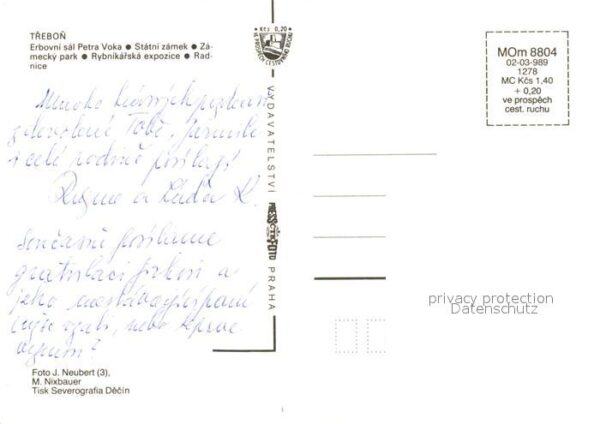 TŘEBOŇ
Erbovní sál Petra Voka ● Státní zámek ● Zá-
mecký park ● Rybníkářská expozice ● Rad-
nice
Kčs 0,20
VE PROSPĚCH CESTOVNÍHO RUCHU
MOm 8804
02-03-989
1278
MC Kčs 1,40
+ 0,20
ve prospěch
cest. ruchu
Mnoho krásných pozdravů
z dovolené Tobě, Jarmilo
a celé rodině posílají
a Láďa K.
Současně posíláme
gratulaci a
jeho
vzali, nebo teprve
vezmou?
VYDAVATELSTVÍ
PRESSFOTO
PRAHA
privacy protection
Datenschutz
Foto J. Neubert (3),
M. Nixbauer
Tisk Severografia Děčín